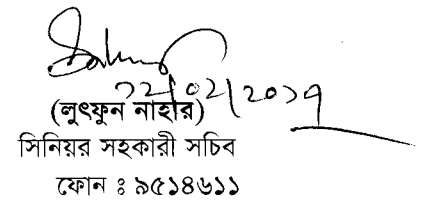 ১২/০২/২০১৭
(লুৎফুন নাহার)
সিনিয়র সহকারী সচিব
ফোন ঃ ৯৫১৪৬১১